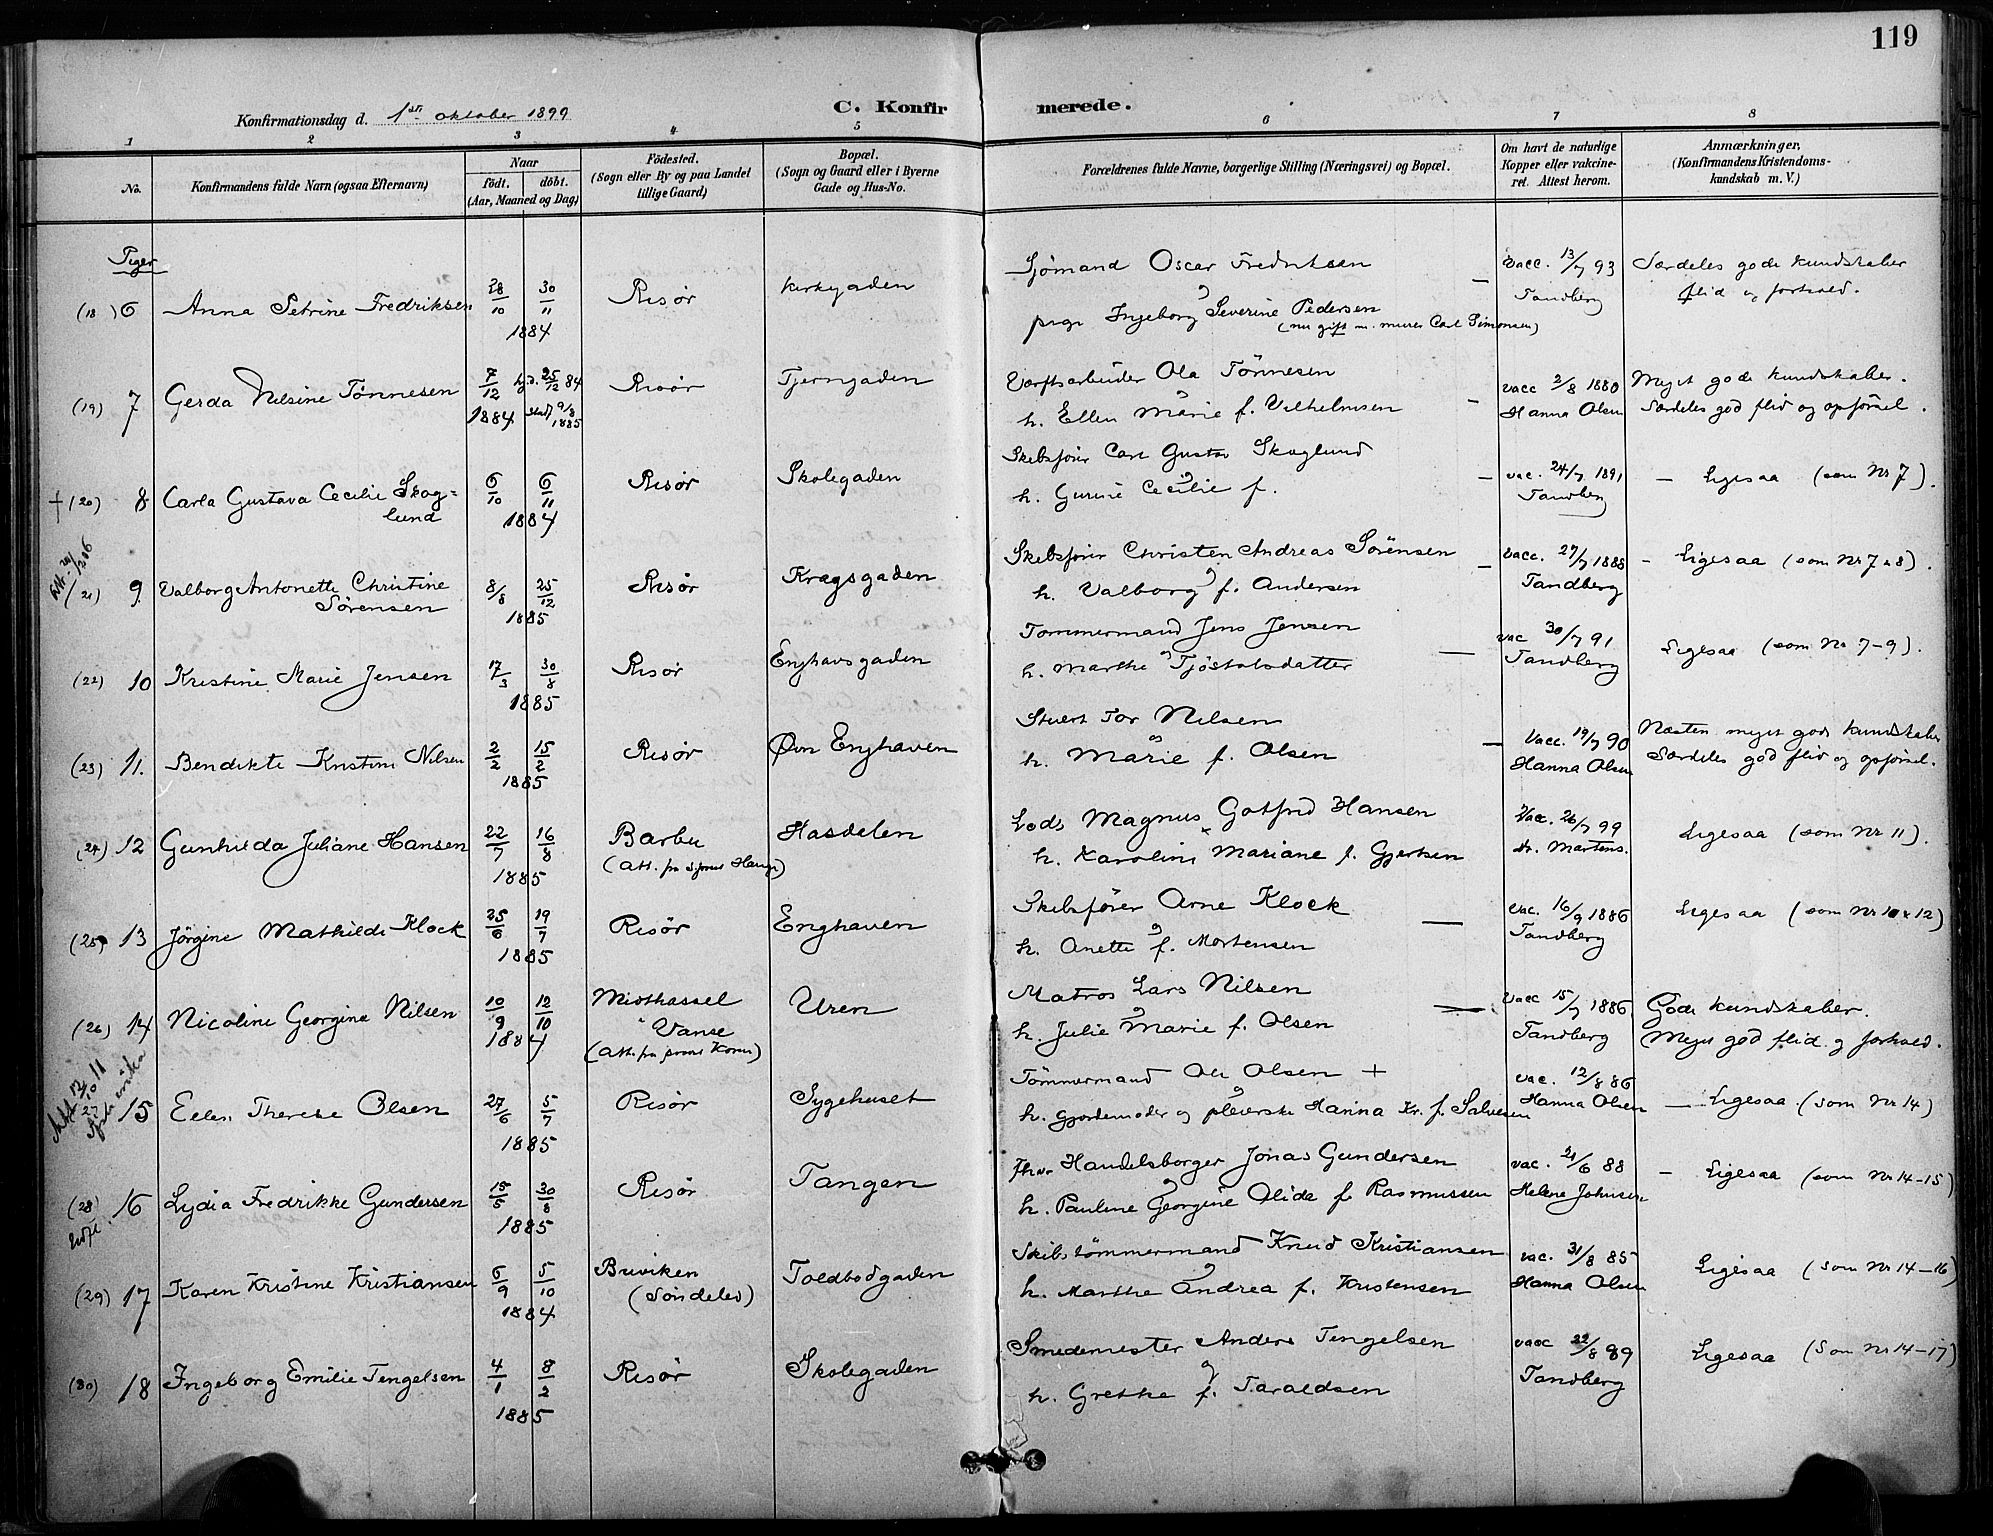 119
C. Konfirmerede.
Konfirmationsdag d. 1ste oktober 1899
1 2 3 4 5 6 7 8
No.
Konfirmandens fulde Navn (ogsaa Efternavn)
Naar
født. døbt.
(Aar, Maaned og Dag)
Fødested.
(Sogn eller By og paa Landet
tillige Gaard)
Bopæl.
(Sogn og Gaard eller i Byerne
Gade og Hus-No.
Forældrenes fulde Navne, borgerlige Stilling (Næringsvei) og Bopæl.
Om havt de naturlige
Kopper eller vakcine-
ret. Attest herom.
Anmærkninger,
(Konfirmandens Kristendoms-
kundskab m. V.)
Piger
(18) 6 Anna Petrine Fredriksen 28/10 30/11 1884 Risør Kirkegaden
Sjømand Oscar Fredriksen
og
pige Ingeborg Severine Pedersen
(nu gift m. murer Carl Simonsen)
vacc. 13/7 93
Tandberg
Særdeles gode kundskaber
flid og forhold.
(19) 7 Gerda Nilsine Tønnesen 7/12 1884 hjd. 25/12 84 stadf 9/3 1885 Risør Tjerngaden
Værftsarbeider Ola Tönnesen
og
h. Ellen Marie f. Vilhelmsen
vacc 2/8 1880
Hanna Olsen
Meget gode kundskaber.
Særdeles god flid og opførsel.
+ (20) 8 Carla Gustava Cecilie Skog=
lund 6/10 6/11 1884 Risør Skolegaden
Skibsfører Carl Gustav Skoglund
og
h. Gurine Cecilie f.
vac. 24/7 1891
Tandberg
— Ligesaa (som Nr 7).
(21) 9. Valborg Antonette Christine
Sørensen 8/8 25/12 1885 Risør Kragsgaden
Skibsfører Christen Andreas Sørensen
og
h. Valborg f. Andersen
vacc. 27/7 1888
Tandberg
- Ligesaa (som Nr 7 & 8).
(22) 10 Kristine Marie Jensen 17/3 30/8 1885 Risør Enghavsgaden
Tømmermand Jens Jensen
og
h. Marthe Tjøstolsdatter
vac 30/7 91
Tandberg
Ligesaa (som Nr 7-9).
(23) 11. Bendikte Kristine Nilsen 2/2 15/2 1885 Risør Øvre Enghaven
Stuert Tor Nilsen
og
h. Marie f. Olsen
Vacc. 19/7 90
Hanna Olsen
Næsten meget gode kundskaber
Særdeles god flid og opførsel.
(24) 12 Gunhilda Juliane Hansen 22/7 16/8 1885 Barbu
(Att. fra Haug) Hasdalen
Lods Magnus Gotfred Hansen
h. Karoline Mariane f. Gjertsen
Vacc. 26/7 99
dr. Martens.
Ligesaa (som Nr 11).
(25) 13 Jørgine Mathilde Klock 25/6 19/7 1885 Risør Enghaven
Skibsfører Arne Klock
og
h. Anette f. Mortensen
vac. 16/9 1886
Tandberg
Ligesaa (som Nr 10 & 12)
(26) 14 Nicoline Georgine Nilsen 10/9 12/10 1884 Midthassel
Vanse
Uren
Matros Lars Nilsen
og
h. Julie Marie f. Olsen
vacc 15/7 1886
Tandberg
Gode kundskaber.
Meget god flid og forhold.
27 15 Ellen Therese Olsen 27/6 5/7 1885 Risør Sygehuset
Tömmermand Ole Olsen +
og
h. gjordemoder og pleierske Hanna Kr. f. Salvesen
vac. 12/8 86
Hanna Olsen
— Ligesaa (som Nr 14)
(28) 16 Lydia Fredrikke Gundersen 15/5 30/8 1885 Risør Tangen
Handelsborger Jonas Gundersen
og
h. Pauline Georgine Alida f. Rasmussen
vac. 21/6 88
Helene Johnsen
- Ligesaa (som Nr 14-15)
(29) 17 Karen Kristine Kristiansen 6/9 5/10 1884 Buviken
(Søndeled) Toldbodgaden
Skibstømmermand Knud Kristiansen
og
h. Marthe Andrea f. Kristensen
vac. 31/8 85
Hanna Olsen
Ligesaa (som Nr 14-16)
(30) 18 Ingeborg Emilie Tengelsen 4/1 8/2 1885 Risør Skolegaden
Smedemester Anders Tengelsen
og
h. Grethe f. Taraldsen
vacc 22/8 89
Tandberg
Ligesaa (som Nr 14-17)